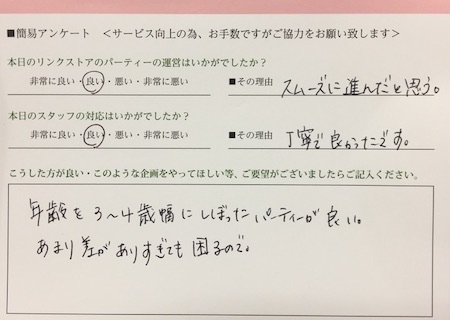 ■簡易アンケート <サービス向上の為、お手数ですがご協力をお願い致します>
本日のリンクストアのパーティーの運営はいかがでしたか?
非常に良い・良い・悪い・非常に悪い ■その理由 スムーズに進んだと思う。
本日のスタッフの対応はいかがでしたか?
非常に良い・良い・悪い・非常に悪い ■その理由 丁寧で良かったです。
こうした方が良い・このような企画をやってほしい等、ご要望がございましたらご記入ください。
年齢を3〜4歳幅にしぼったパーティーが良い。
あまり差がありすぎても困るので。